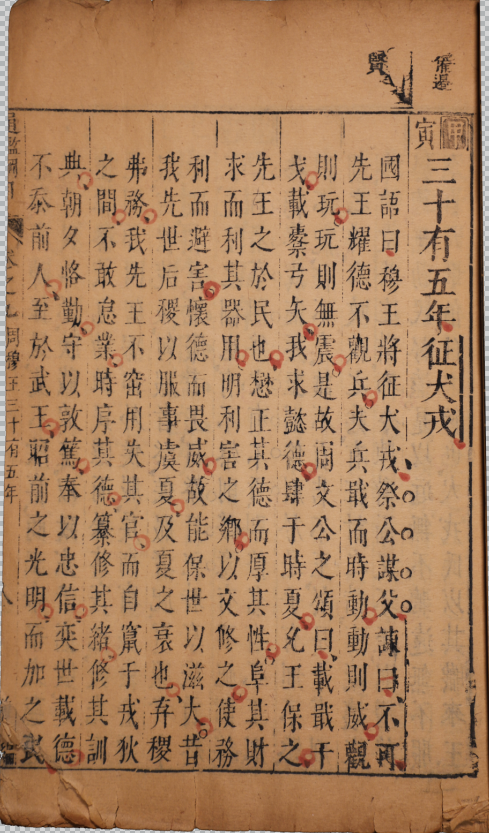 賢
寅
三十有五年征犬戎
國語曰穆王將征犬戎祭公謀父諫曰不可
先王耀德不觀兵夫兵戢而時動動則威觀
則玩玩則無震是故周文公之頌曰載戢干
戈載櫜弓矢我求懿德肆于時夏允王保之
先王之於民也懋正其德而厚其性阜其財
求而利其器用明利害之鄉以文修之使務
利而避害懷德而畏威故能保世以滋大昔
我先世后稷以服事虞夏及夏之衰也弃稷
弗務我先王不窋用失其官而自竄于戎狄
之間不敢怠業時序其德纂修其緒修其訓
典朝夕恪勤守以敦篤奉以忠信奕世載德
不忝前人至於武王昭前之光明而加之
周穆王三十有五年